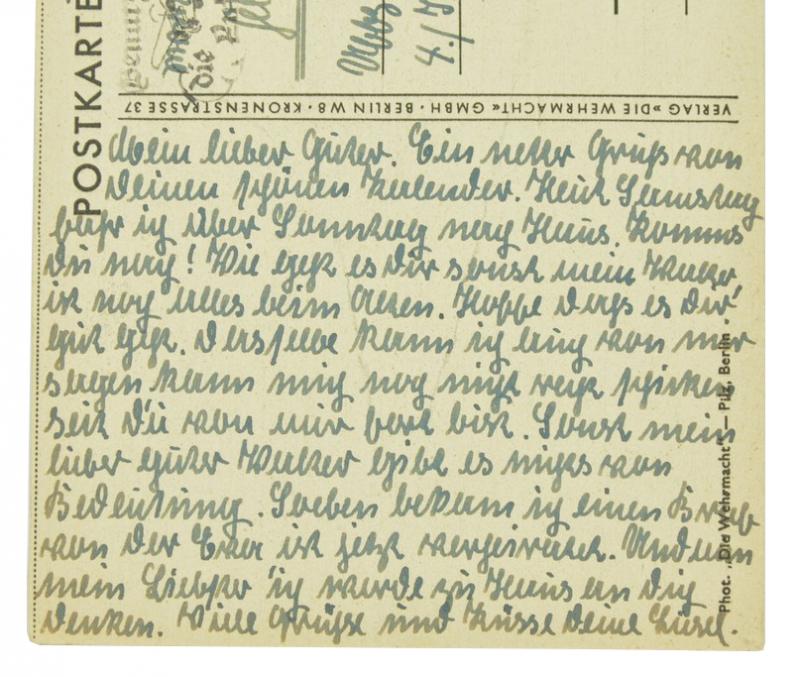 POSTKARTE
VERLAG »DIE WEHRMACHT« GMBH · BERLIN W 8 · KRONENSTRASSE 37
Mein lieber Guter. Ein netter Gruß von
Deinen schönen Kalender. Heut Samstag
fahr ich über Sonntag nach Haus. Komms
Du nach! Wie geht es Dir sonst mein
ist noch alles beim Alten. Hoffe dass es Dir
gut geht. Dasselbe kann ich auch von mir
sagen kann mich noch nicht recht schicken
seit Du von mir fort bist. Sonst mein
lieber guter gibt es nichts von
Bedeutung. Soeben bekam ich einen Brief
von der ist jetzt verheiratet. Und nun
mein Liebster ich werde zu Haus an dich
denken. Viele Grüße und Küsse Deine Liesel.
Phot. „Die Wehrmacht“ — Pilz, Berlin -